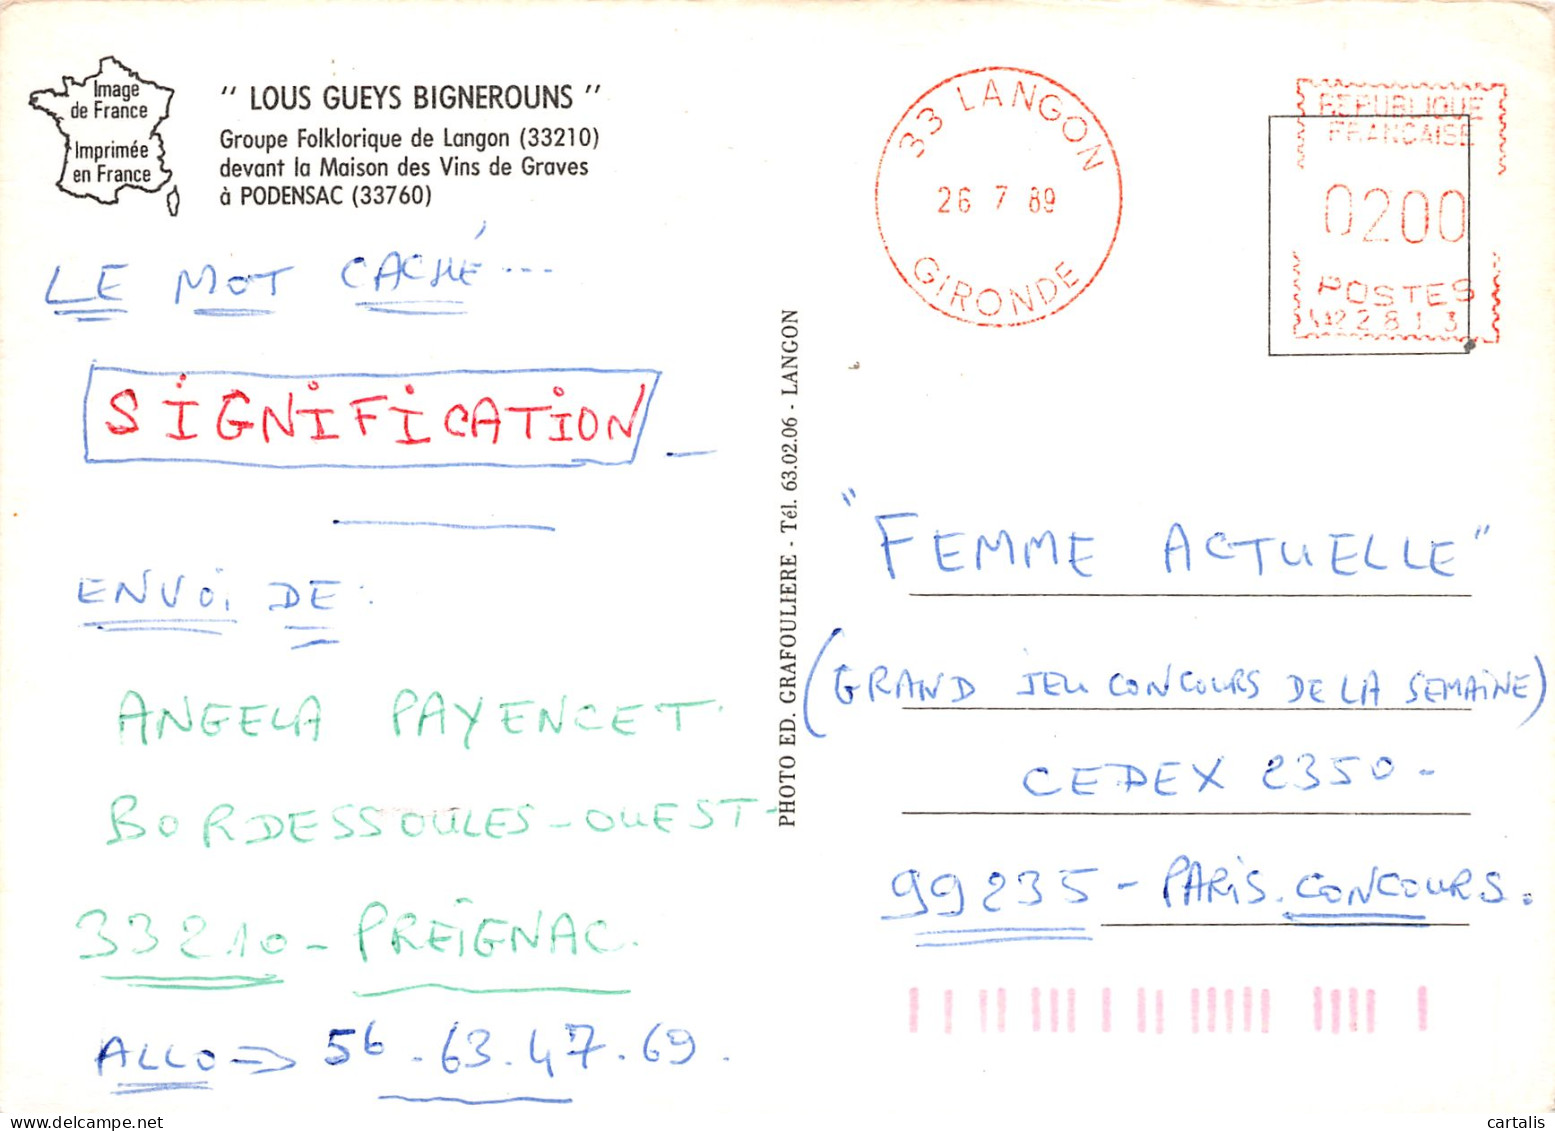 Image
de France
Imprimée
en France
" LOUS GUEYS BIGNEROUNS "
Groupe Folklorique de Langon (33210)
devant la Maison des Vins de Graves
à PODENSAC (33760)
LE MOT CACHÉ...
SIGNIFICATION
ENVOI DE :
ANGELA PAYENCET.
BORDESSOULES-OUEST-
33210-PREIGNAC.
ALLO ⇒ 56.63.47.69.
PHOTO ED. GRAFOULIERE - Tél. 63.02.06 - LANGON
33 LANGON
26 7 89
GIRONDE
REPUBLIQUE
FRANCAISE
0200
POSTES
"FEMME ACTUELLE"
(GRAND JEU CONCOURS DE LA SEMAINE)
CEDEX 2350-
99235-PARIS.CONCOURS.
cartalis